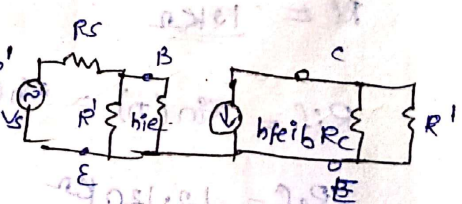 Rs
B
C
Vs
R'
hie
hfeib
Rc
R'
E
E